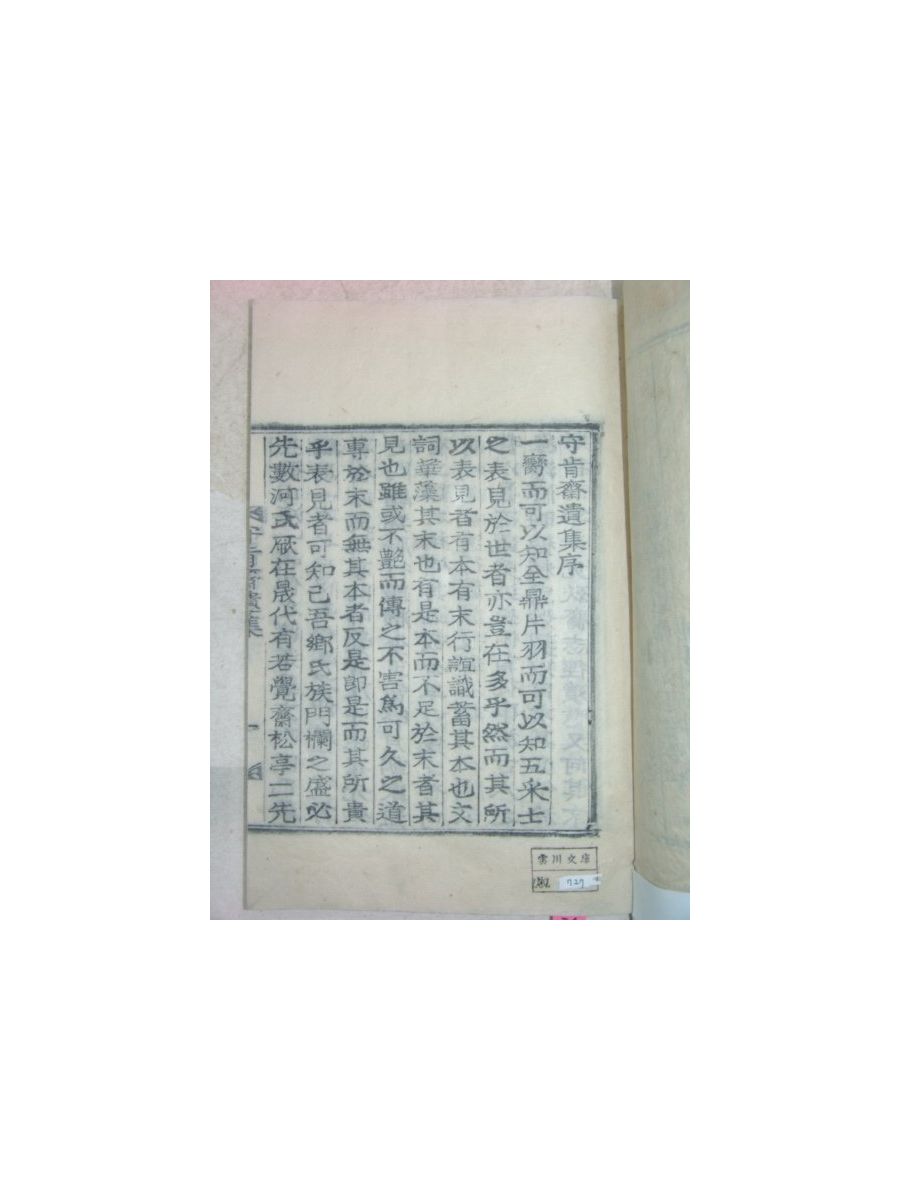 守肯齋遺集序
一臠而可以知全鼎片羽而可以知五采士
之表見於世者亦豈在多乎然而其所
以表見者有本有末行誼識蓄其本也文
詞華藻其末也有是本而不足於末者其
見也雖或不艶而傳之不害爲可久之道
專於末而無其本者反是卽是而其所貴
乎表見者可知已吾鄉氏族門欄之盛必
先數河氏厥在晟代有若覺齋松亭二先
一
雲川文庫
727